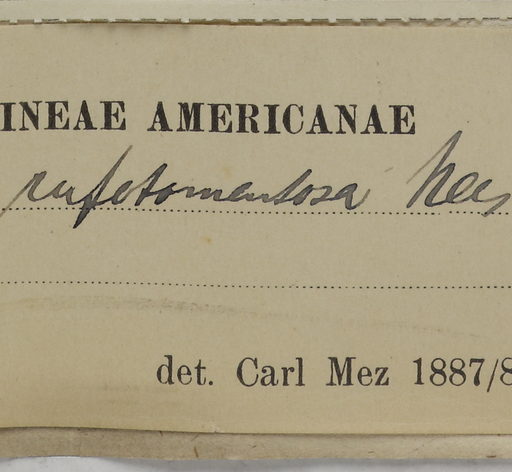 INEAE AMERICANAE
rufotomentosa Nees
det. Carl Mez 1887/8